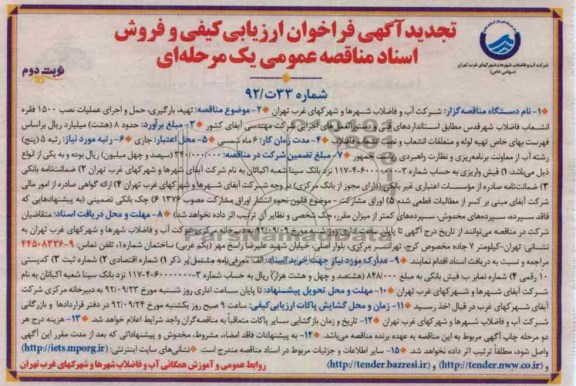 تجدید آگهی فراخوان ارزیابی کیفی و فروش
اسناد مناقصه عمومی یک مرحله‌ای
شرکت آب و فاضلاب شهرها و شهرکهای غرب تهران
(سهامی خاص)
نوبت دوم
شماره ۳۳ت/۹۲
۱- نام دستگاه مناقصه گزار: شرکت آب و فاضلاب شهرها و شهرکهای غرب تهران ۲- موضوع مناقصه: تهیه، بارگیری، حمل و اجرای عملیات نصب ۱۵۰۰ فقره
انشعاب فاضلاب شهرقدس مطابق استانداردهای فنی و دستورالعمل‌های اجرایی شرکت مهندسی آبفای کشور ۳- مبلغ برآورد: حدود ۸ (هشت) میلیارد ریال براساس
فهرست بهای خاص تهیه لوله و متعلقات انشعاب و نصب انشعاب فاضلاب ۴- مدت زمان کار: ۶ ماه شمسی ۵- محل اعتبار: جاری ۶- رتبه مورد نیاز: رتبه ۵ (پنج)
رشته آب از معاونت برنامه‌ریزی و نظارت راهبردی ریاست جمهور ۷- مبلغ تضمین شرکت در مناقصه: (سیصد و چهل میلیون) ریال بوده و به یکی از انواع
ذیل می‌باشد: ۱) فیش واریزی به حساب شماره نزد بانک سینا شعبه اکباتان به نام شرکت آبفای شهرها و شهرکهای غرب تهران ۲) ضمانتنامه بانکی
۳) ضمانت‌نامه صادره از مؤسسات اعتباری غیر بانکی (دارای مجوز از بانک مرکزی) در وجه شرکت آبفای شهرها و شهرکهای غرب تهران ۴) ارائه گواهی صادره از امور مالی
شرکت آبفای مبنی بر کسر از مطالبات قطعی شده ۵) اوراق مشارکت - موضوع قانون نحوه انتشار اوراق مشارکت مصوب ۱۳۷۶ ۶) چک بانکی تضمینی (به پیشنهادهایی که
فاقد سپرده، سپرده‌های مخدوش، سپرده‌های کمتر از میزان مقرر، چک شخصی و نظایر آن ترتیب اثر داده نخواهد شد) ۸- مهلت و محل دریافت اسناد: متقاضیان
شرکت در مناقصه می‌توانند از تاریخ درج آگهی تا پایان ساعت اداری روز شنبه مورخ ۹۲/۰۹/۰۹ به دبیرخانه مرکزی شرکت آب و فاضلاب شهرها و شهرکهای غرب تهران به
نشانی: تهران-کیلومتر ۷ جاده مخصوص کرج، تهرانسر مرکزی، بلوار اصلی، خیابان شهید علیرضا راسخ مهر (یکم غربی) ساختمان شماره ۱، تلفن تماس ۹-۴۴۵۰۸۳۳۶
مراجعه و نسبت به دریافت اسناد اقدام نمایند. ۹- مدارک مورد نیاز جهت خرید اسناد: الف: معرفی‌نامه مشتمل بر ذکر ۱) شماره اقتصادی ۲) شماره ثبت ۳) کدپستی
۱۰ رقمی ۴) شماره نمابر ب: فیش بانکی به مبلغ ۸۴۸۰۰۰ (هشتصد و چهل و هشت هزار) ریال به حساب شماره نزد بانک سینا شعبه اکباتان به نام
شرکت آبفای شهرها و شهرکهای غرب تهران ۱۰- مهلت و محل تحویل پیشنهادات: تا پایان ساعت اداری روز شنبه مورخ ۹۲/۰۹/۲۳ به دبیرخانه مرکزی شرکت
آبفای شهرکهای غرب در قبال اخذ رسید ۱۱- زمان و محل گشایش پاکات ارزیابی کیفی: ساعت ۹ صبح روز یکشنبه مورخ ۹۲/۰۹/۲۴ در دفتر قراردادها و بازرگانی
شرکت آب و فاضلاب شهرها و شهرکهای غرب تهران ۱۲- تاریخ و زمان بازگشایی سایر پاکات متعاقباً به مناقصه‌گران واجد شرایط اعلام خواهد شد. ۱۳- هزینه درج هر
دو مرحله چاپ آگهی مربوط به این مناقصه به عهده برنده مناقصه می‌باشد. ۱۴- به پیشنهادات فاقد امضاء، مشروط، مخدوش و پیشنهاداتی که بعد از مدت مقرر این آگهی
واصل شود، مطلقاً ترتیب اثر داده نخواهد شد. ۱۵- سایر اطلاعات و جزئیات مربوط در اسناد مناقصه مندرج است. نشانی‌های سایت اینترنتی: (http://iets.mporg.ir)
و (http://tender.nww.co.ir) و (http://tender.bazresi.ir)
روابط عمومی و آموزش همگانی آب و فاضلاب شهرها و شهرکهای غرب تهران